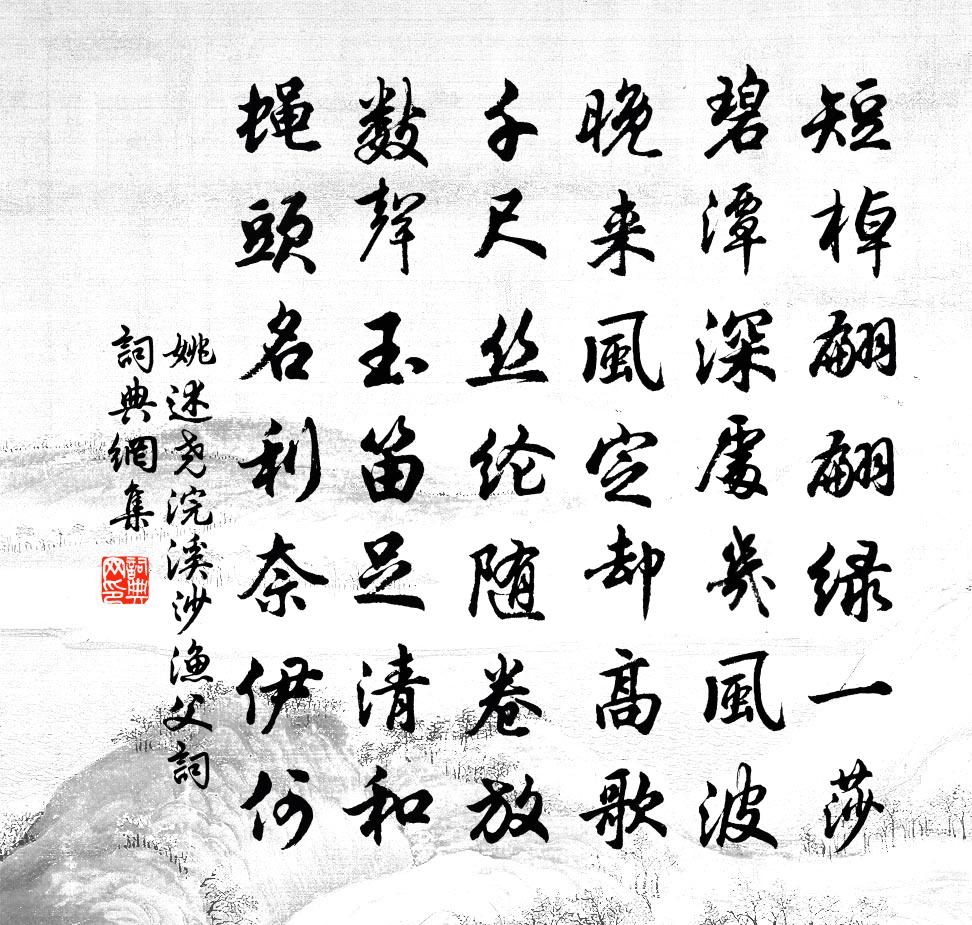 短棹翩翩绿一莎
碧潭深處幾風波
晚来風定却高歌
千尺丝纶随卷放
数聲玉笛足清和
蝇頭名利奈伊何
姚述尧浣溪沙漁父詞
詞典網集
詞典网印